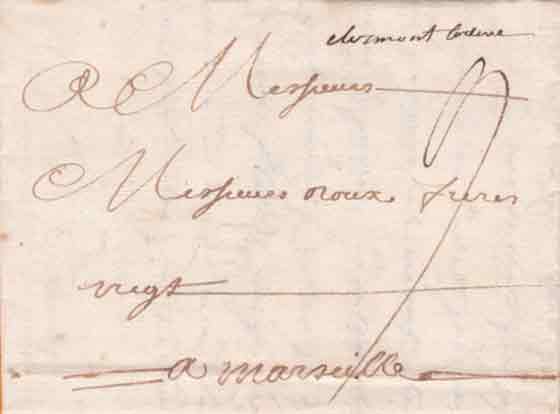 clermont lodeve
A Messieurs
Messieurs Roux freres
negt
a marseille